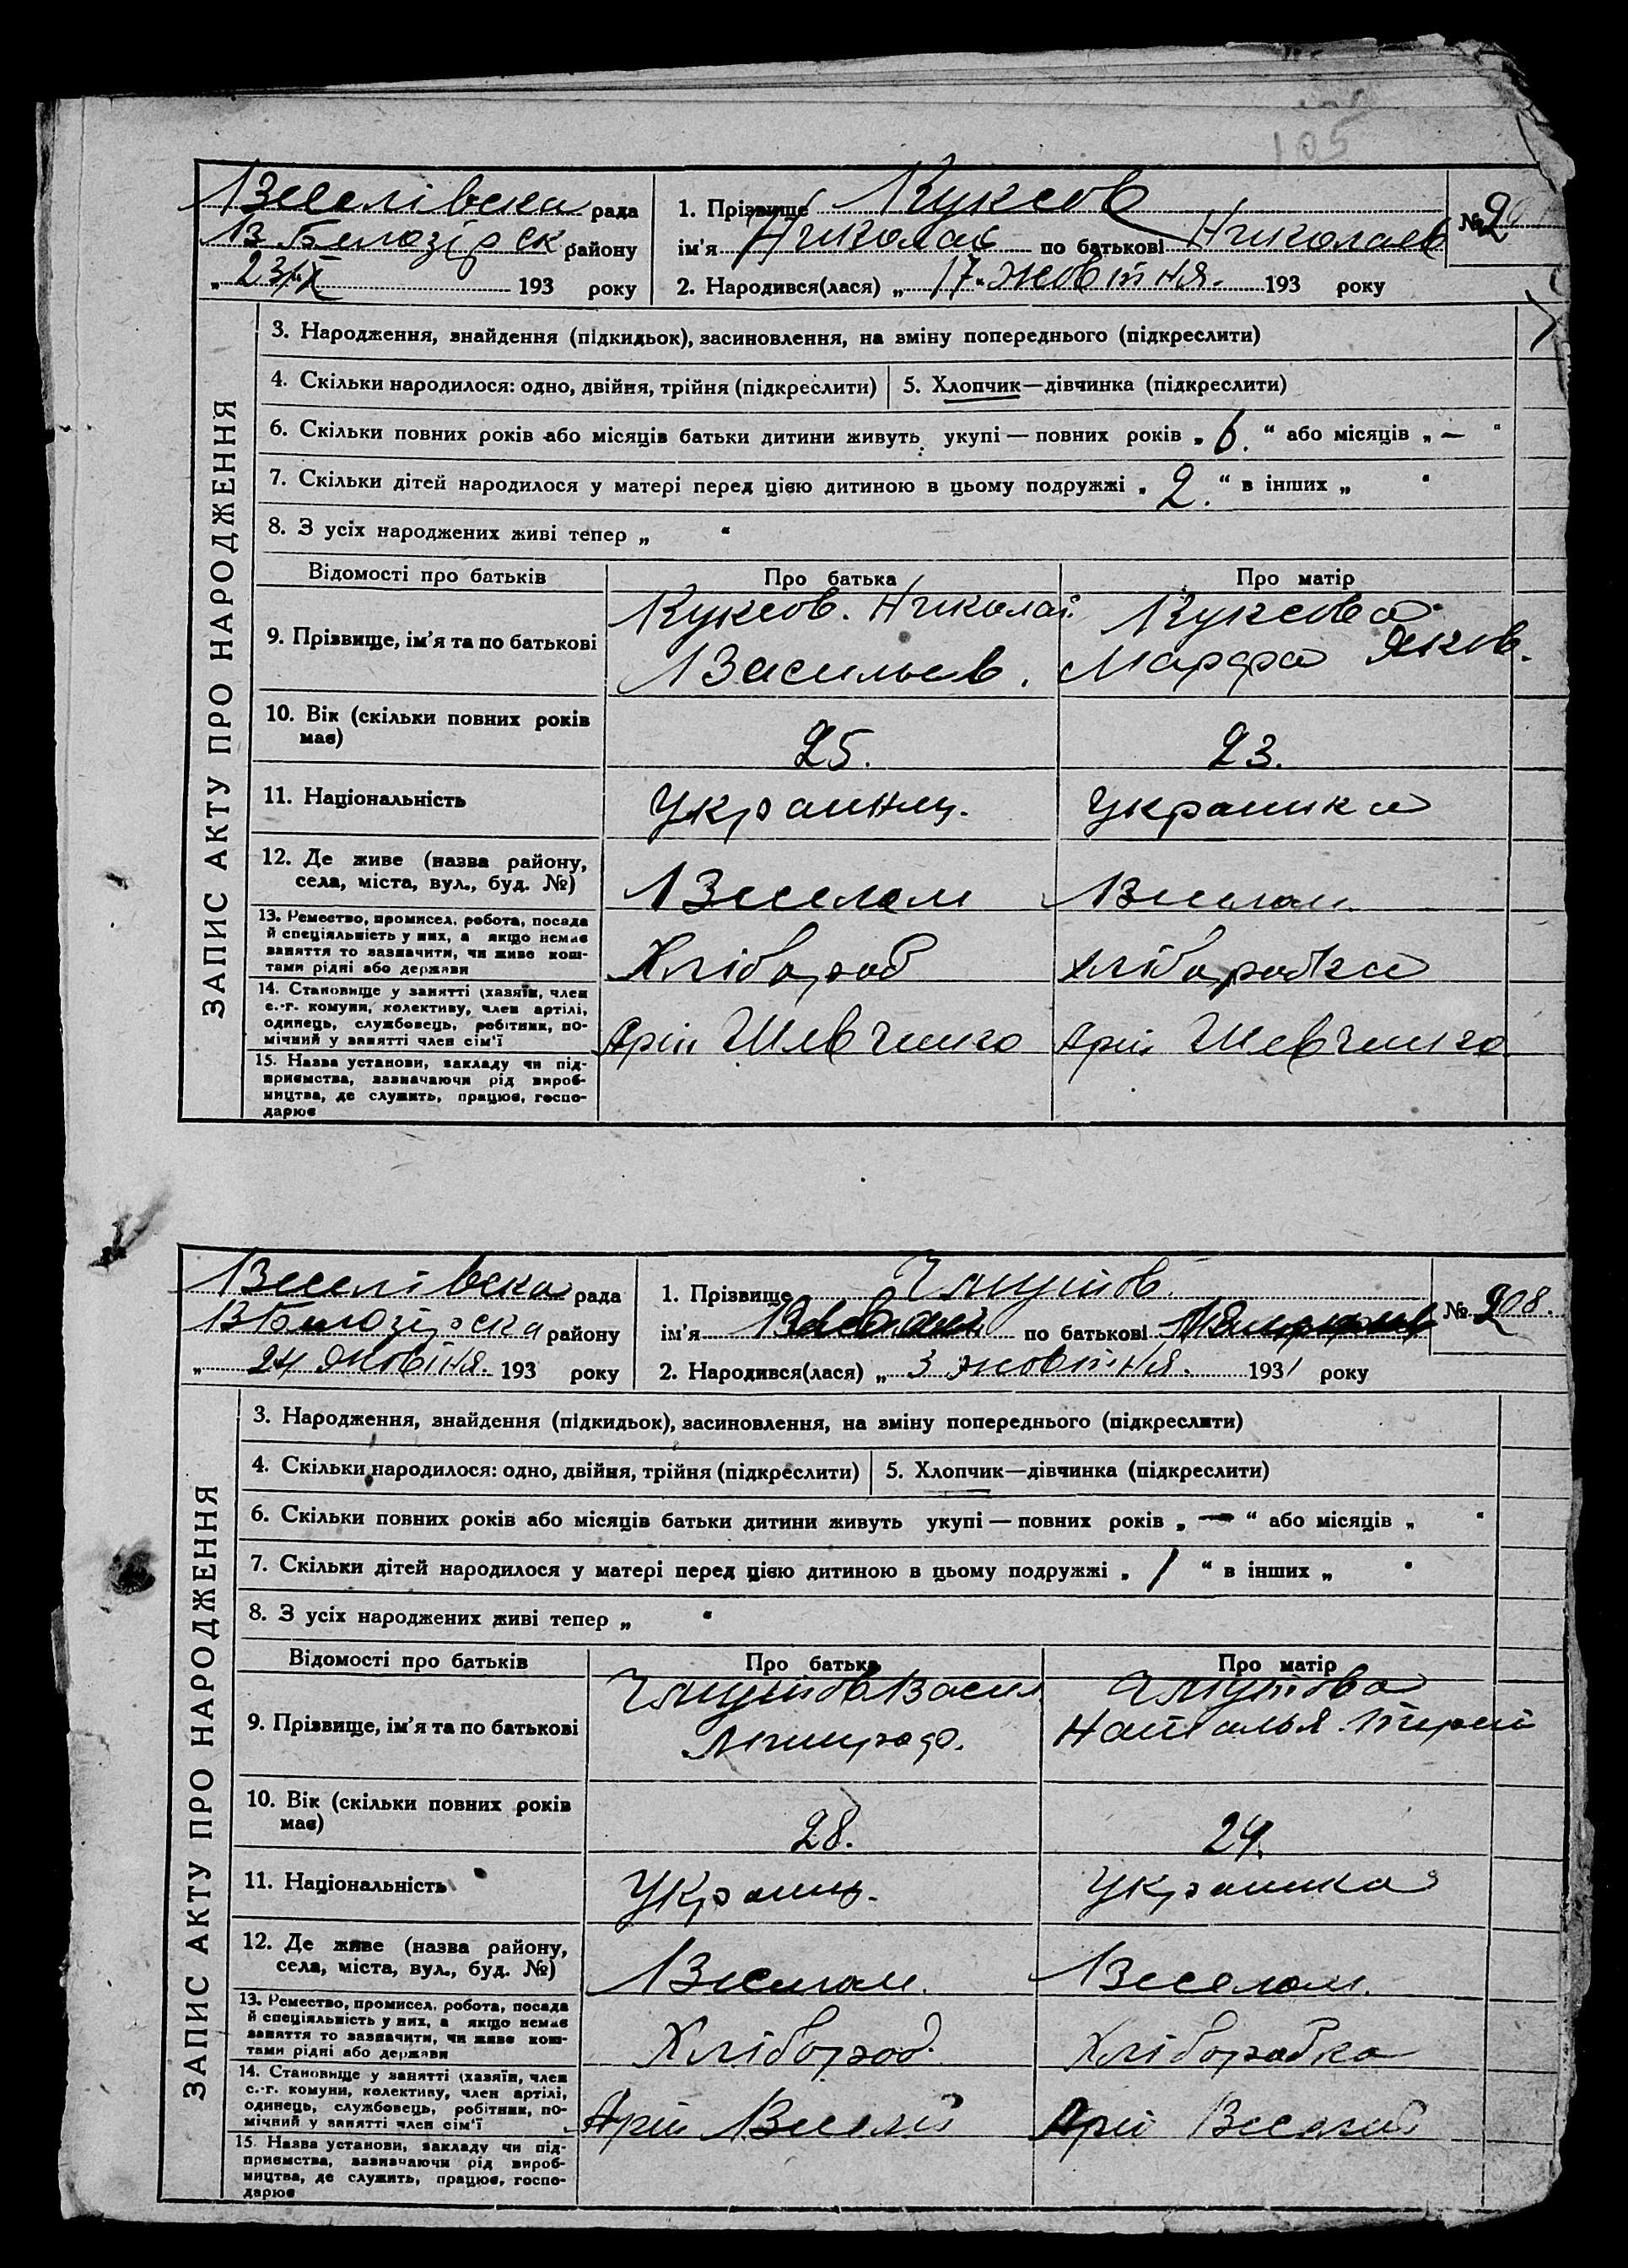 105
Веселівска рада
В Билозірск району
„ 23/X 193 року
1. Прізвище Куксов
ім'я Николай по батькові Николаев
№ 20
2. Народився(лася) „ 17 " жовтня. 193 року
ЗАПИС АКТУ ПРО НАРОДЖЕННЯ
3. Народження, знайдення (підкидьок), засиновлення, на зміну попереднього (підкреслити)
4. Скільки народилося: одно, двійня, трійня (підкреслити) 5. Хлопчик—дівчинка (підкреслити)
6. Скільки повних років або місяців батьки дитини живуть укупі — повних років „ 6. “ або місяців „ — “
7. Скільки дітей народилося у матері перед цією дитиною в цьому подружжі „ 2. “ в інших „ “
8. З усіх народжених живі тепер „ “
Відомості про батьків Про батька Про матір
9. Прізвище, ім'я та по батькові
Куксов. Николай Васильев.
Куксова Марфа Яков.
10. Вік (скільки повних років має) 25. 23.
11. Національність Украинец. Украинка
12. Де живе (назва району, села, міста, вул., буд. №) Веселом Веселом
13. Ремество, промисел, робота, посада й спеціяльність у них, а якщо немає заняття то зазначити, чи живе коштами рідні або держави Хлібороб Хліборобка
14. Становище у занятті (хазяїн, член с.-г. комуни, колективу, член артілі, одинець, службовець, робітник, помічний у занятті член сім'ї Арт Шевченко Арт Шевченко
15. Назва установи, закладу чи підприємства, зазначаючи рід виробництва, де служить, працює, господарює
Веселівска рада
В Билозірска району
„ 24 жовтня. 193 року
1. Прізвище
ім'я по батькові
№ 208.
2. Народився(лася) „ 3 жовтня. 1931 року
ЗАПИС АКТУ ПРО НАРОДЖЕННЯ
3. Народження, знайдення (підкидьок), засиновлення, на зміну попереднього (підкреслити)
4. Скільки народилося: одно, двійня, трійня (підкреслити) 5. Хлопчик—дівчинка (підкреслити)
6. Скільки повних років або місяців батьки дитини живуть укупі — повних років „ — “ або місяців „ “
7. Скільки дітей народилося у матері перед цією дитиною в цьому подружжі „ 1 “ в інших „ “
8. З усіх народжених живі тепер „ “
Відомості про батьків Про батька Про матір
9. Прізвище, ім'я та по батькові
Васил
Наталья
10. Вік (скільки повних років має) 28. 24.
11. Національність Украинец. Украинка
12. Де живе (назва району, села, міста, вул., буд. №) Веселом. Веселом.
13. Ремество, промисел, робота, посада й спеціяльність у них, а якщо немає заняття то зазначити, чи живе коштами рідні або держави Хлібороб. Хліборобка
14. Становище у занятті (хазяїн, член с.-г. комуни, колективу, член артілі, одинець, службовець, робітник, помічний у занятті член сім'ї
15. Назва установи, закладу чи підприємства, зазначаючи рід виробництва, де служить, працює, господарює